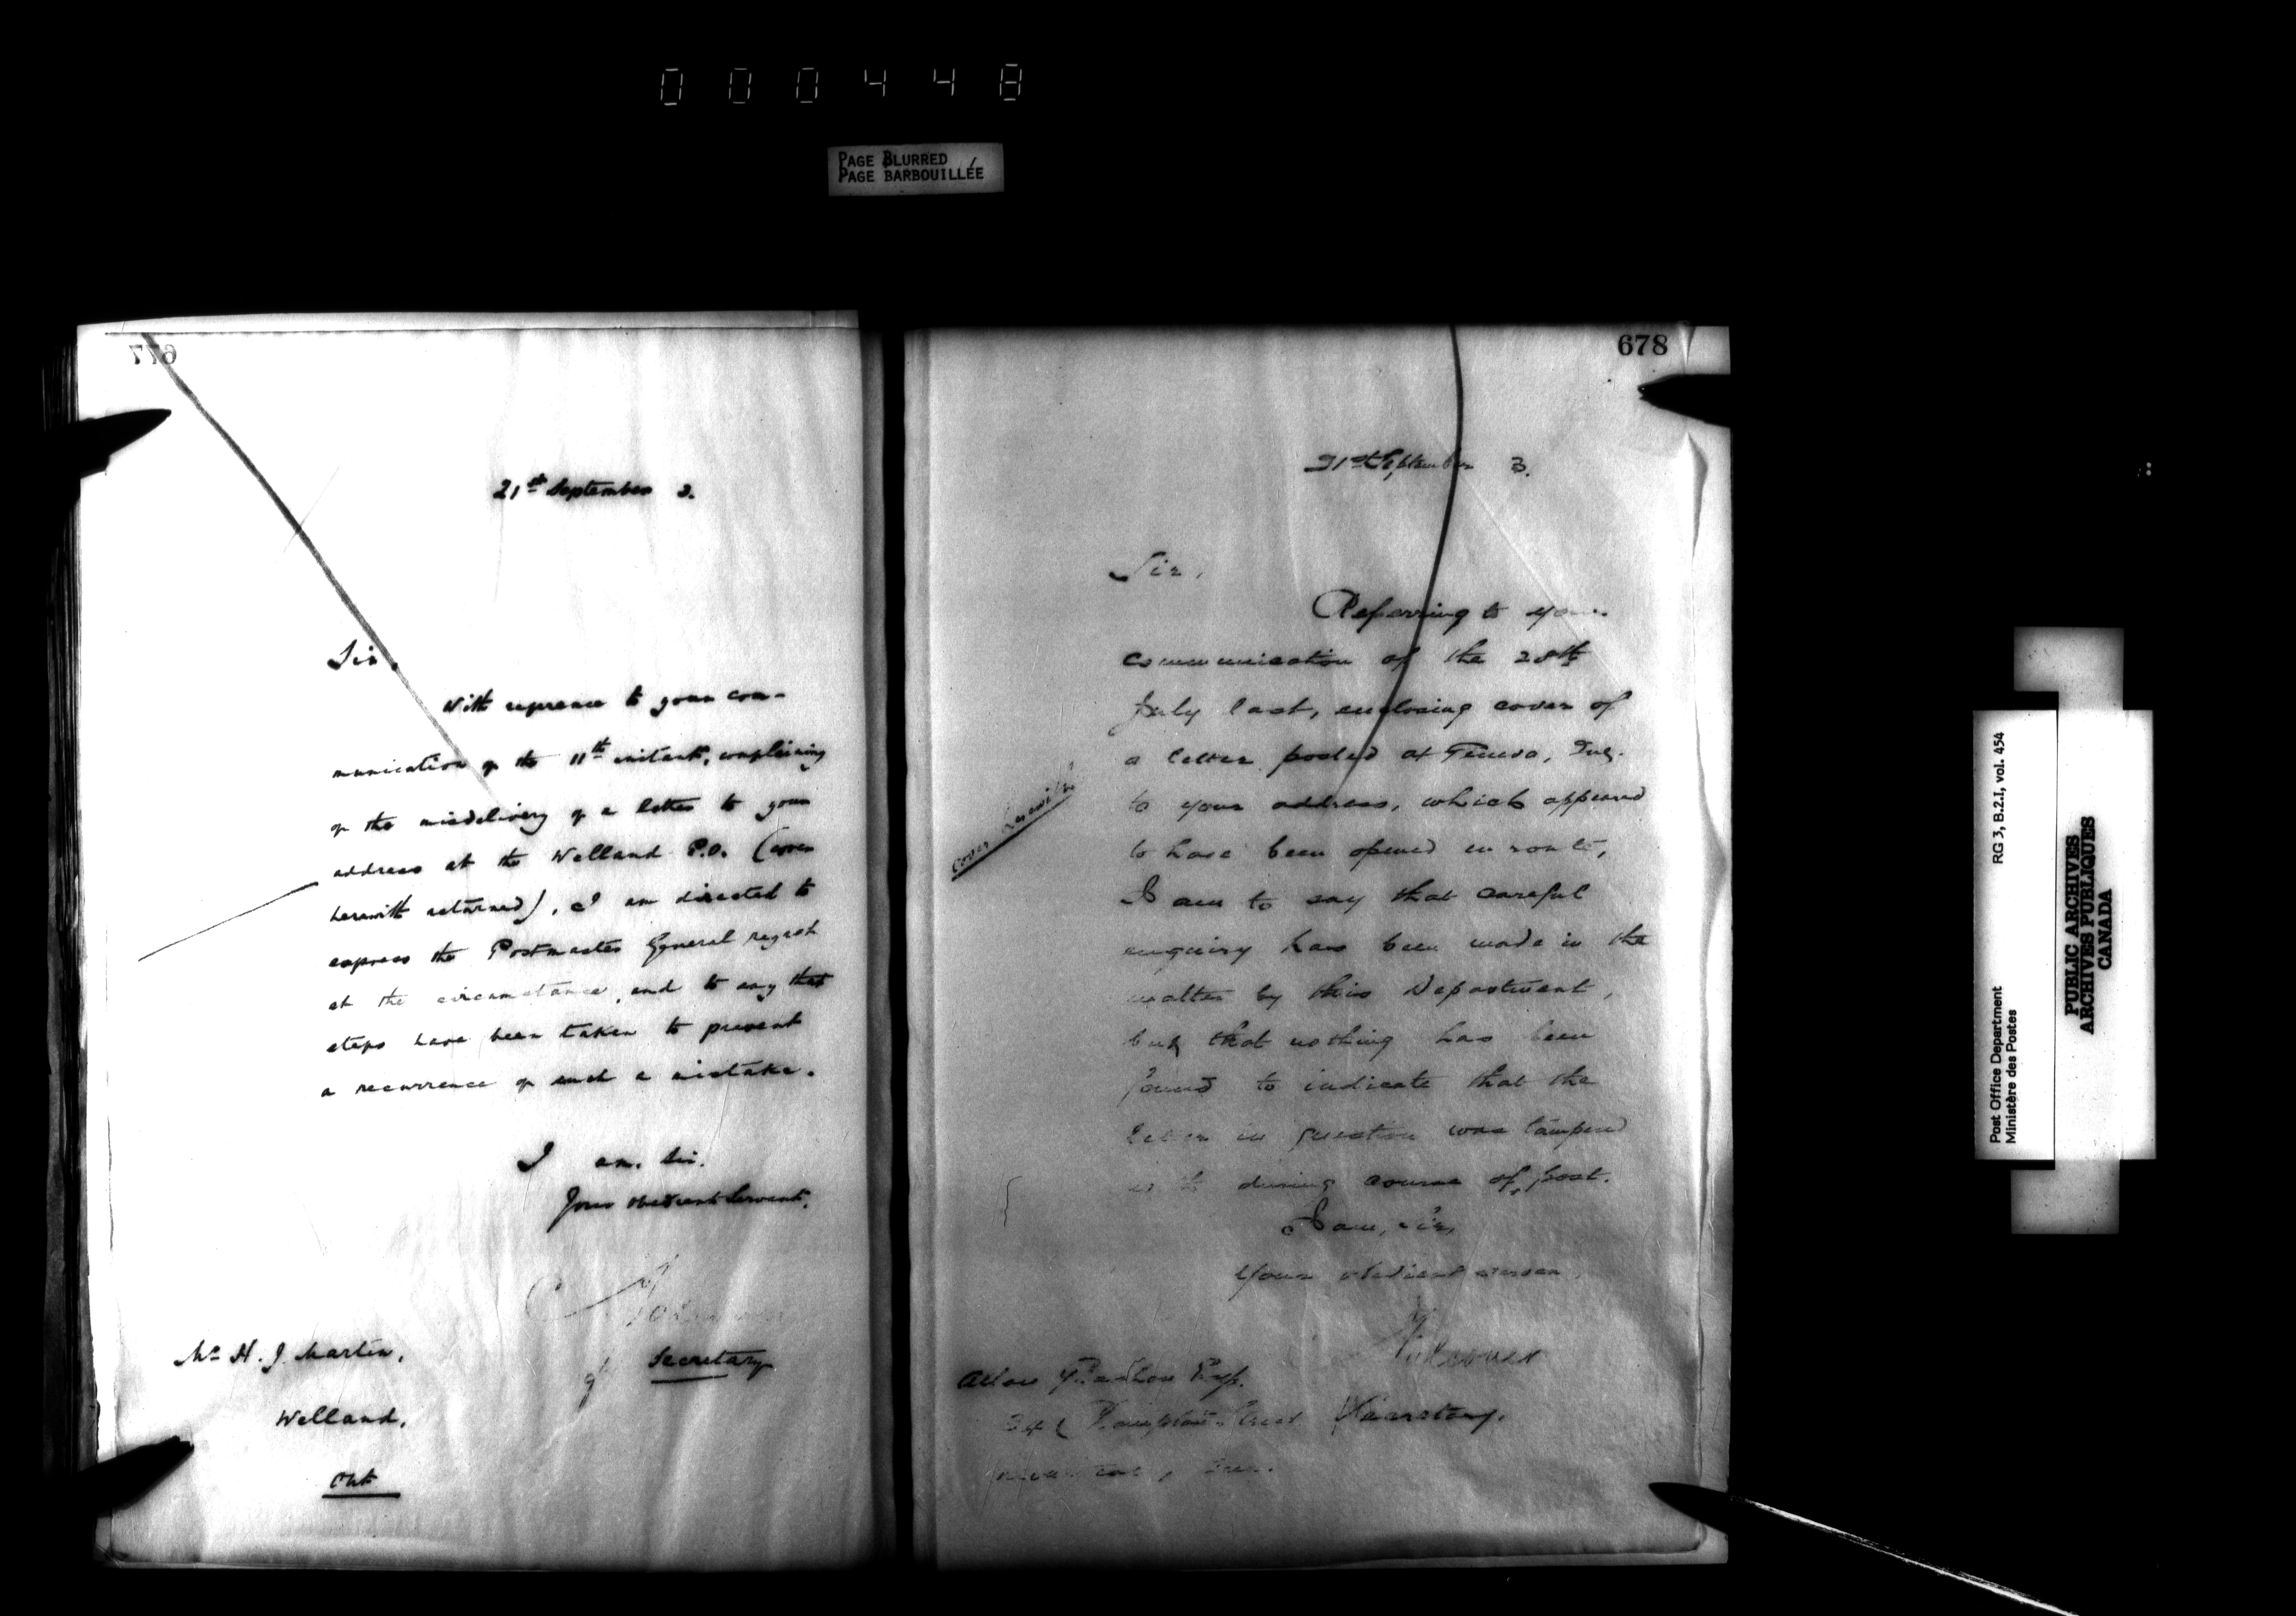 000448
PAGE BLURRED
PAGE BARBOUILLÉE
677
21st September 3.
Sir,
With reference to your com-
munication of the 11th instant, complaining
of the misdelivery of a letter to your
address at the Welland P.O. (cover
herewith returned), I am directed to
express the Postmaster General regret
at the circumstance, and to say that
steps have been taken to prevent
a recurrence of such a mistake.
I am, Sir,
Your obedient Servant,
Secretary
Mr H. J. Martin,
Welland,
Ont
678
21st September 3.
Sir,
Referring to your
communication of the 28th
July last, enclosing cover of
a letter posted at Geneva,
to your address, which appeared
to have been opened en route,
I am to say that careful
enquiry has been made in the
matter by this Department,
but that nothing has been
found to indicate that the
letter in question was tampered
with during course of post.
I am, Sir,
Your obedient servan
Cover herewith
Secretary.
Street
Post Office Department
Ministère des Postes
RG 3, B.2.I, vol. 454
PUBLIC ARCHIVES
ARCHIVES PUBLIQUES
CANADA